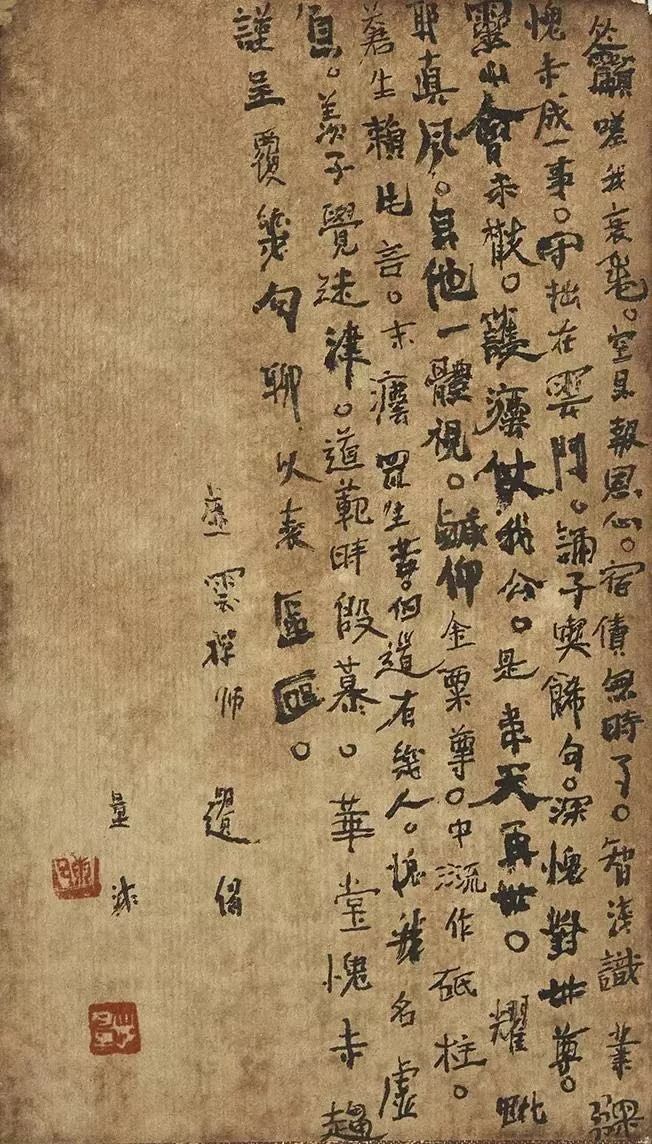 籲嗟我衰老。空具報恩心。宿債無時了。智淺識業深
愧未成一事。守拙在雲門。誦子喫餙句。深愧對世尊。
靈山會未散。護灋仗我公。是韋天再世。耀毗
耶真風。自他一體視。鹹仰金粟尊。中流作砥柱。
蒼生賴片言。末灋眾生苦。向道有幾人。愧我名虛
負。羨子覺迷津。道範時殷慕。華堂愧未趨
謹呈覆幾句聊以表區區。
虛雲禪师遺偈
量